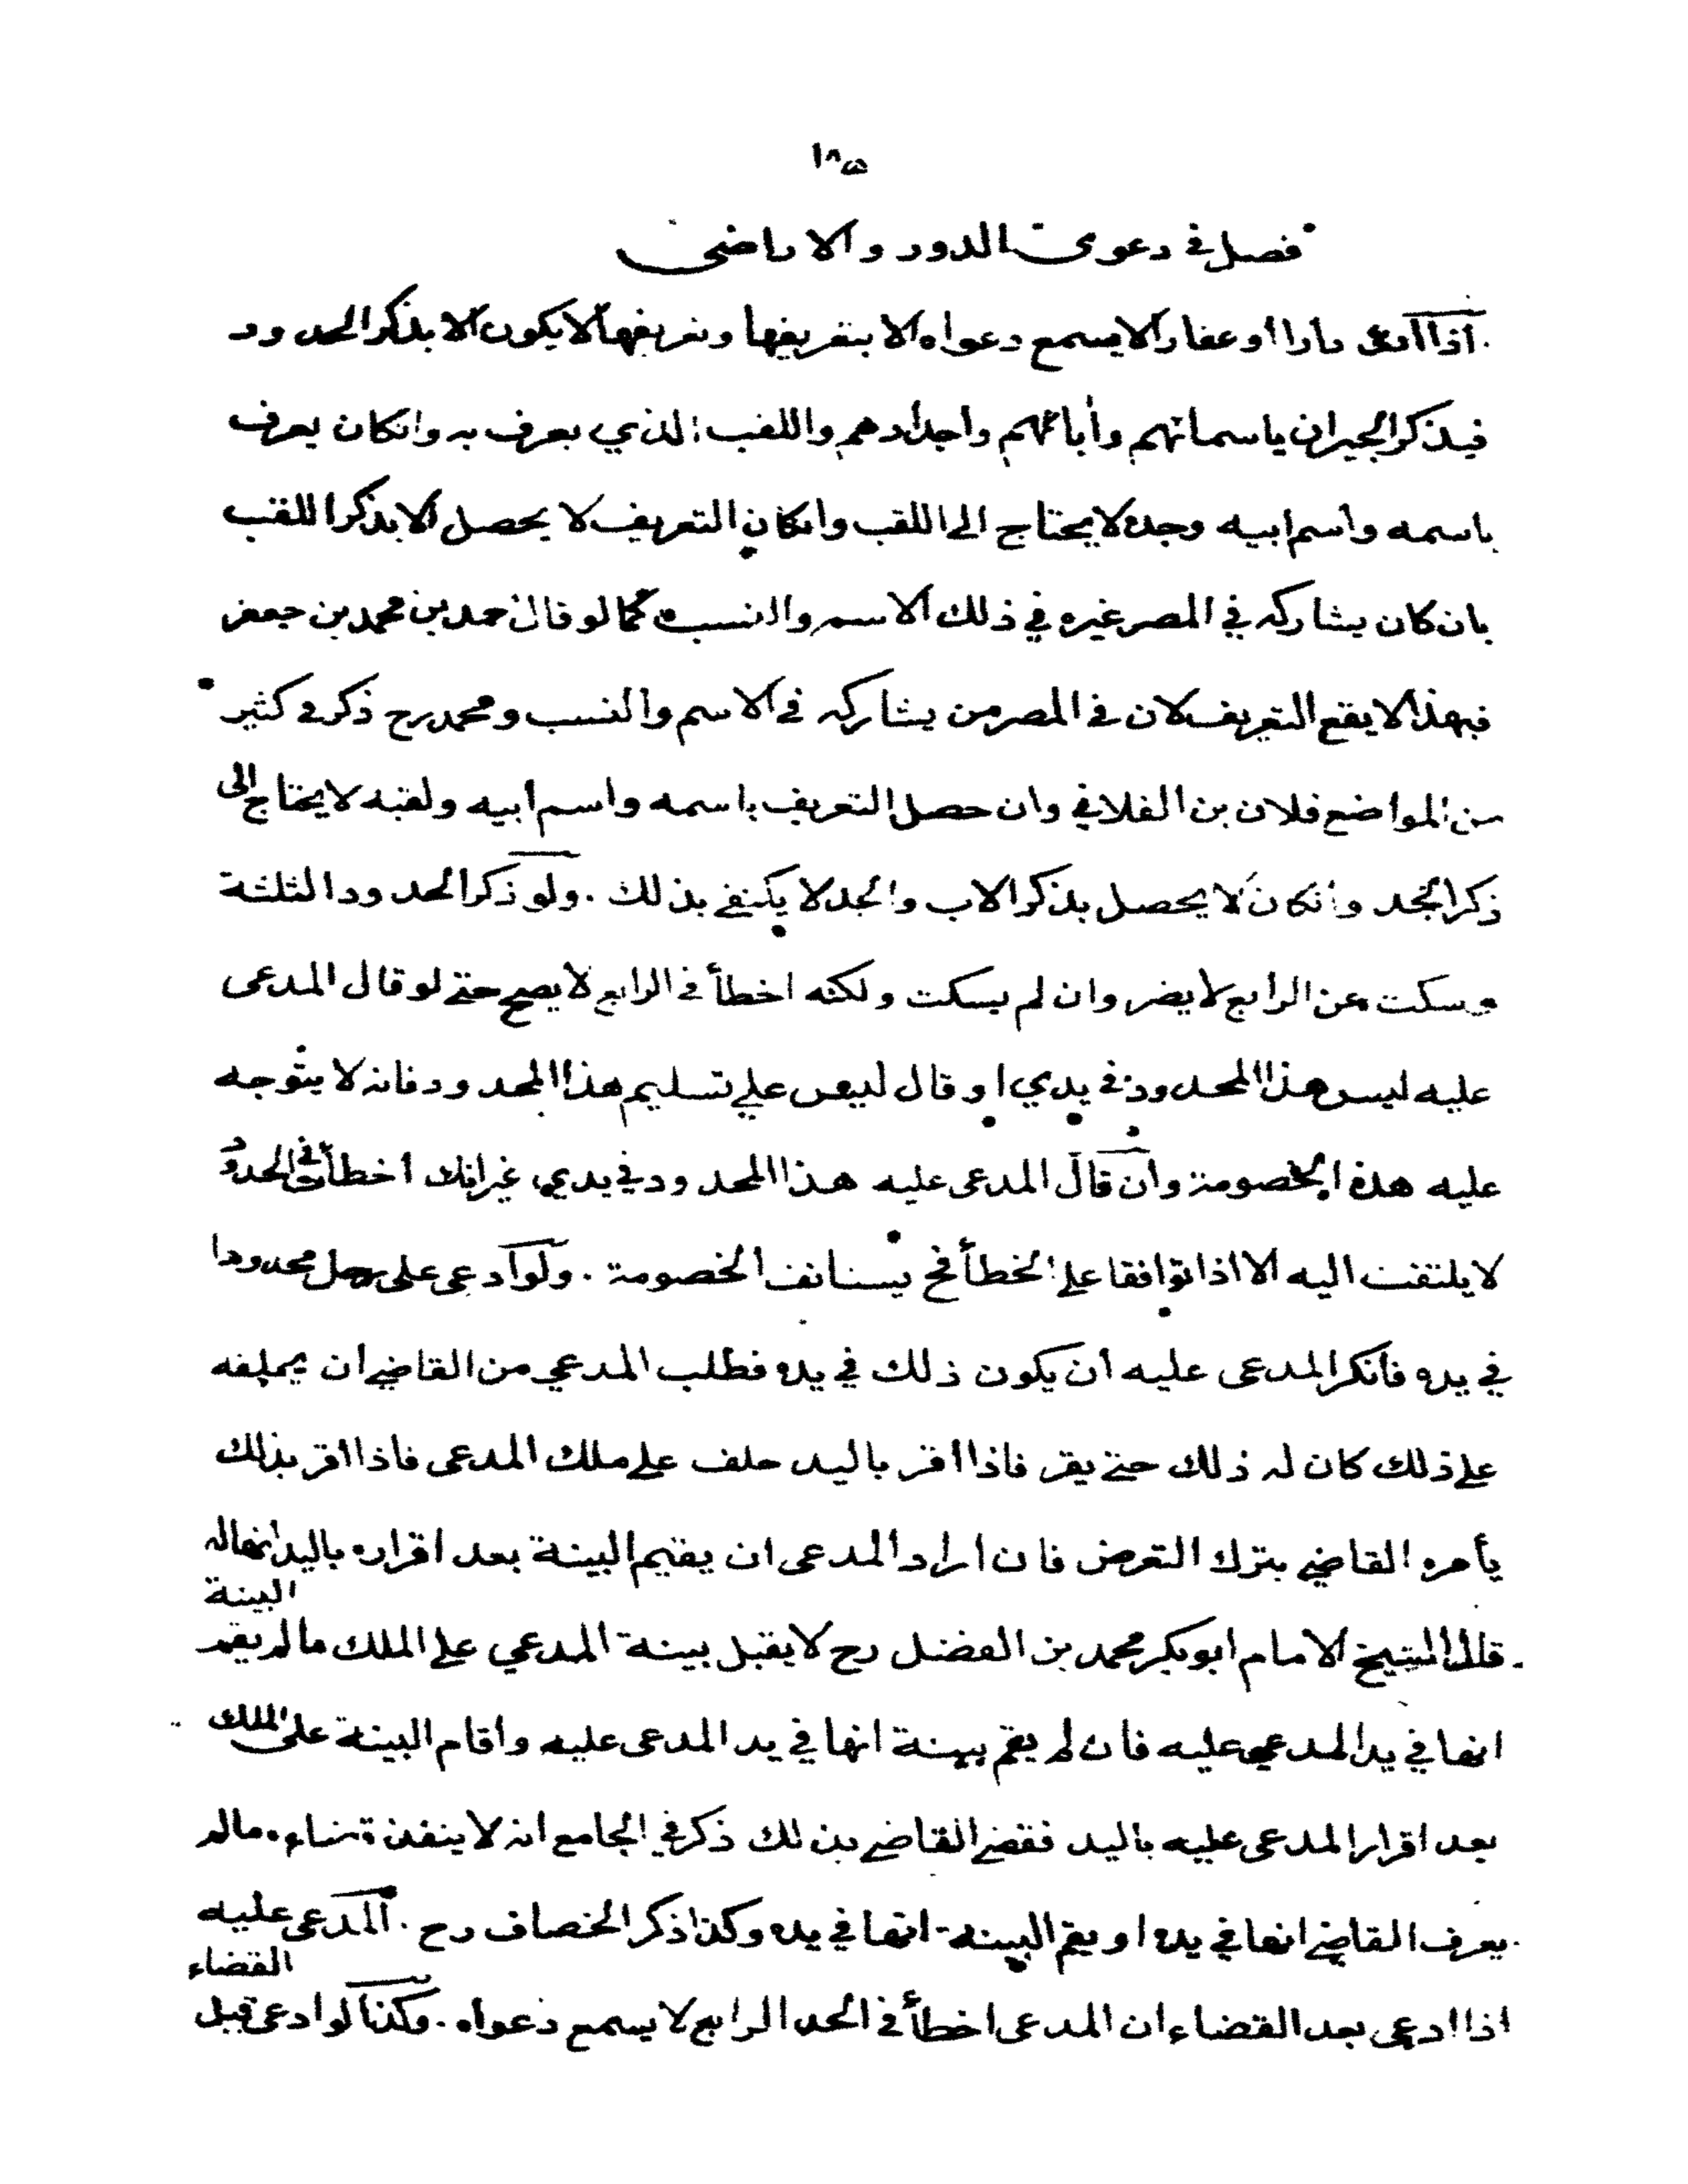 ١٨٥
فصل في دعوى الدور والاراضى
اذا ادعى دارا أو عقارا لا يسمع دعواه الا بتعريفها وتعريفها لا يكون الا بذكر الحدود
فيذكر الجيران باسمائهم وأبائهم واجدادهم واللقب الذي يعرف به وانكان يعرف
باسمه واسم ابيه وجده لا يحتاج الى اللقب وانكان التعريف لا يحصل الا بذكر اللقب
بان كان يشاركه في المصر غيره في ذلك الاسم والنسب كما لو قال احمد بن محمد بن جعفر
فبهذا لا يقع التعريف لان في المصر من يشاركه في الاسم والنسب ومحمد رح ذكر في كثير
من المواضع فلان بن الفلاني وان حصل التعريف باسمه واسم أبيه ولقبه لا يحتاج الى
ذكر الجد وانكان لا يحصل بذكر الاب والجد لا يكتفى بذلك . ولو ذكر الحدود الثلثة
وسكت عن الرابع لا يضر وان لم يسكت ولكنه اخطأ في الرابع لا يصح حتى لو قال المدعى
عليه ليس هذا المحدود في يدي او قال ليس علي تسليم هذا المحدود فانه لا يتوجه
عليه هذه الخصومة وان قال المدعى عليه هذا المحدود في يدي غير انك أخطأت في الحدود
لا يلتفت اليه الا اذا توافقا على الخطأ فح يستانف الخصومة . ولو ادعى على رجل محدودا
في يده فأنكر المدعى عليه أن يكون ذلك في يده فطلب المدعي من القاضي ان يحلفه
على ذلك كان له ذلك حتى يقر فاذا أقر باليد حلف على ملك المدعى فاذا اقر بذلك
يأمره القاضي بترك التعرض فان اراد المدعى ان يقيم البينة بعد اقراره باليد انها له
البينة
قال الشيخ الامام ابو بكر محمد بن الفضل رح لا يقبل بينة المدعي على الملك ما لم يقم
انها في يد المدعى عليه فان لم يقم بينة انها في يد المدعى عليه واقام البينة على الملك
بعد اقرار المدعى عليه باليد فقضى القاضي بذلك ذكر في الجامع انه لا ينفذ قضاءه ما لم
يعرف القاضي انها في يده او يقم البينة انها في يده وكذا ذكر الخصاف رح . المدعى عليه
القضاء
اذا ادعى بعد القضاء ان المدعى اخطأ في الحد الرابع لا يسمع دعواه . وكذا لو ادعى قبل